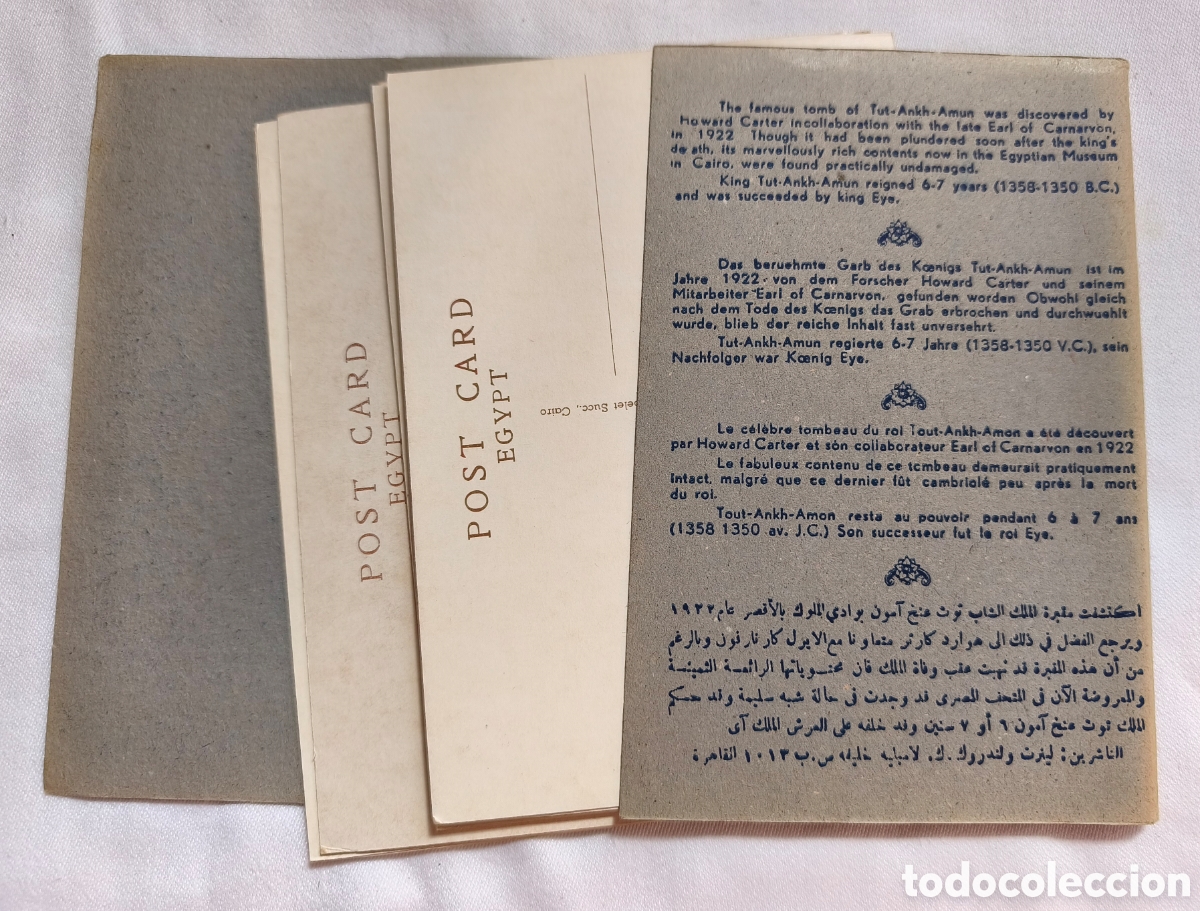 POST CARD
EGYPT
POST CARD
EGYPT
elet Succ., Cairo
The famous tomb of Tut-Ankh-Amun was discovered by
Howard Carter incollaboration with the late Earl of Carnarvon,
in 1922 Though it had been plundered soon after the king's
death, its marvellously rich contents now in the Egyptian Museum
in Cairo, were found practically undamaged.
King Tut-Ankh-Amun reigned 6-7 years (1358-1350 B.C.)
and was succeeded by king Eye.
Das beruehmte Garb des Kœnigs Tut-Ankh-Amun ist im
Jahre 1922 von dem Forscher Howard Carter und seinem
Mitarbeiter Earl of Carnarvon, gefunden worden Obwohl gleich
nach dem Tode des Kœnigs das Grab erbrochen und durchwuehlt
wurde, blieb der reiche Inhalt fast unversehrt.
Tut-Ankh-Amun regierte 6-7 Jahre (1358-1350 V.C.), sein
Nachfolger war Kœnig Eye.
Le célèbre tombeau du roi Tout-Ankh-Amon a été découvert
par Howard Carter et són collaborateur Earl of Carnarvon en 1922
Le fabuleux contenu de ce tombeau demeurait pratiquement
intact, malgré que ce dernier fût cambriolé peu après la mort
du roi.
Tout-Ankh-Amon resta au pouvoir pendant 6 à 7 ans
(1358 1350 av. J.C.) Son successeur fut le roi Eye.
اكتشفت مقبرة الملك الشاب توت عنخ آمون بوادي الملوك بالأقصر عام ١٩٢٢
ويرجع الفضل في ذلك الى هوارد كارتر متعاونا مع الايرل كارنارفون وبالرغم
من أن هذه المقبرة قد نهبت عقب وفاة الملك فان محتوياتها الرائعة الثمينة
والمعروضة الآن في المتحف المصرى قد وجدت في حالة شبه سليمة وقد حكم
الملك توت عنخ آمون ٦ أو ٧ سنين وقد خلفه على العرش الملك آى
الناشرين: لينرت ولندروك. ك. لامبليه خليفه ص.ب ١٠١٣ القاهرة
todocoleccion